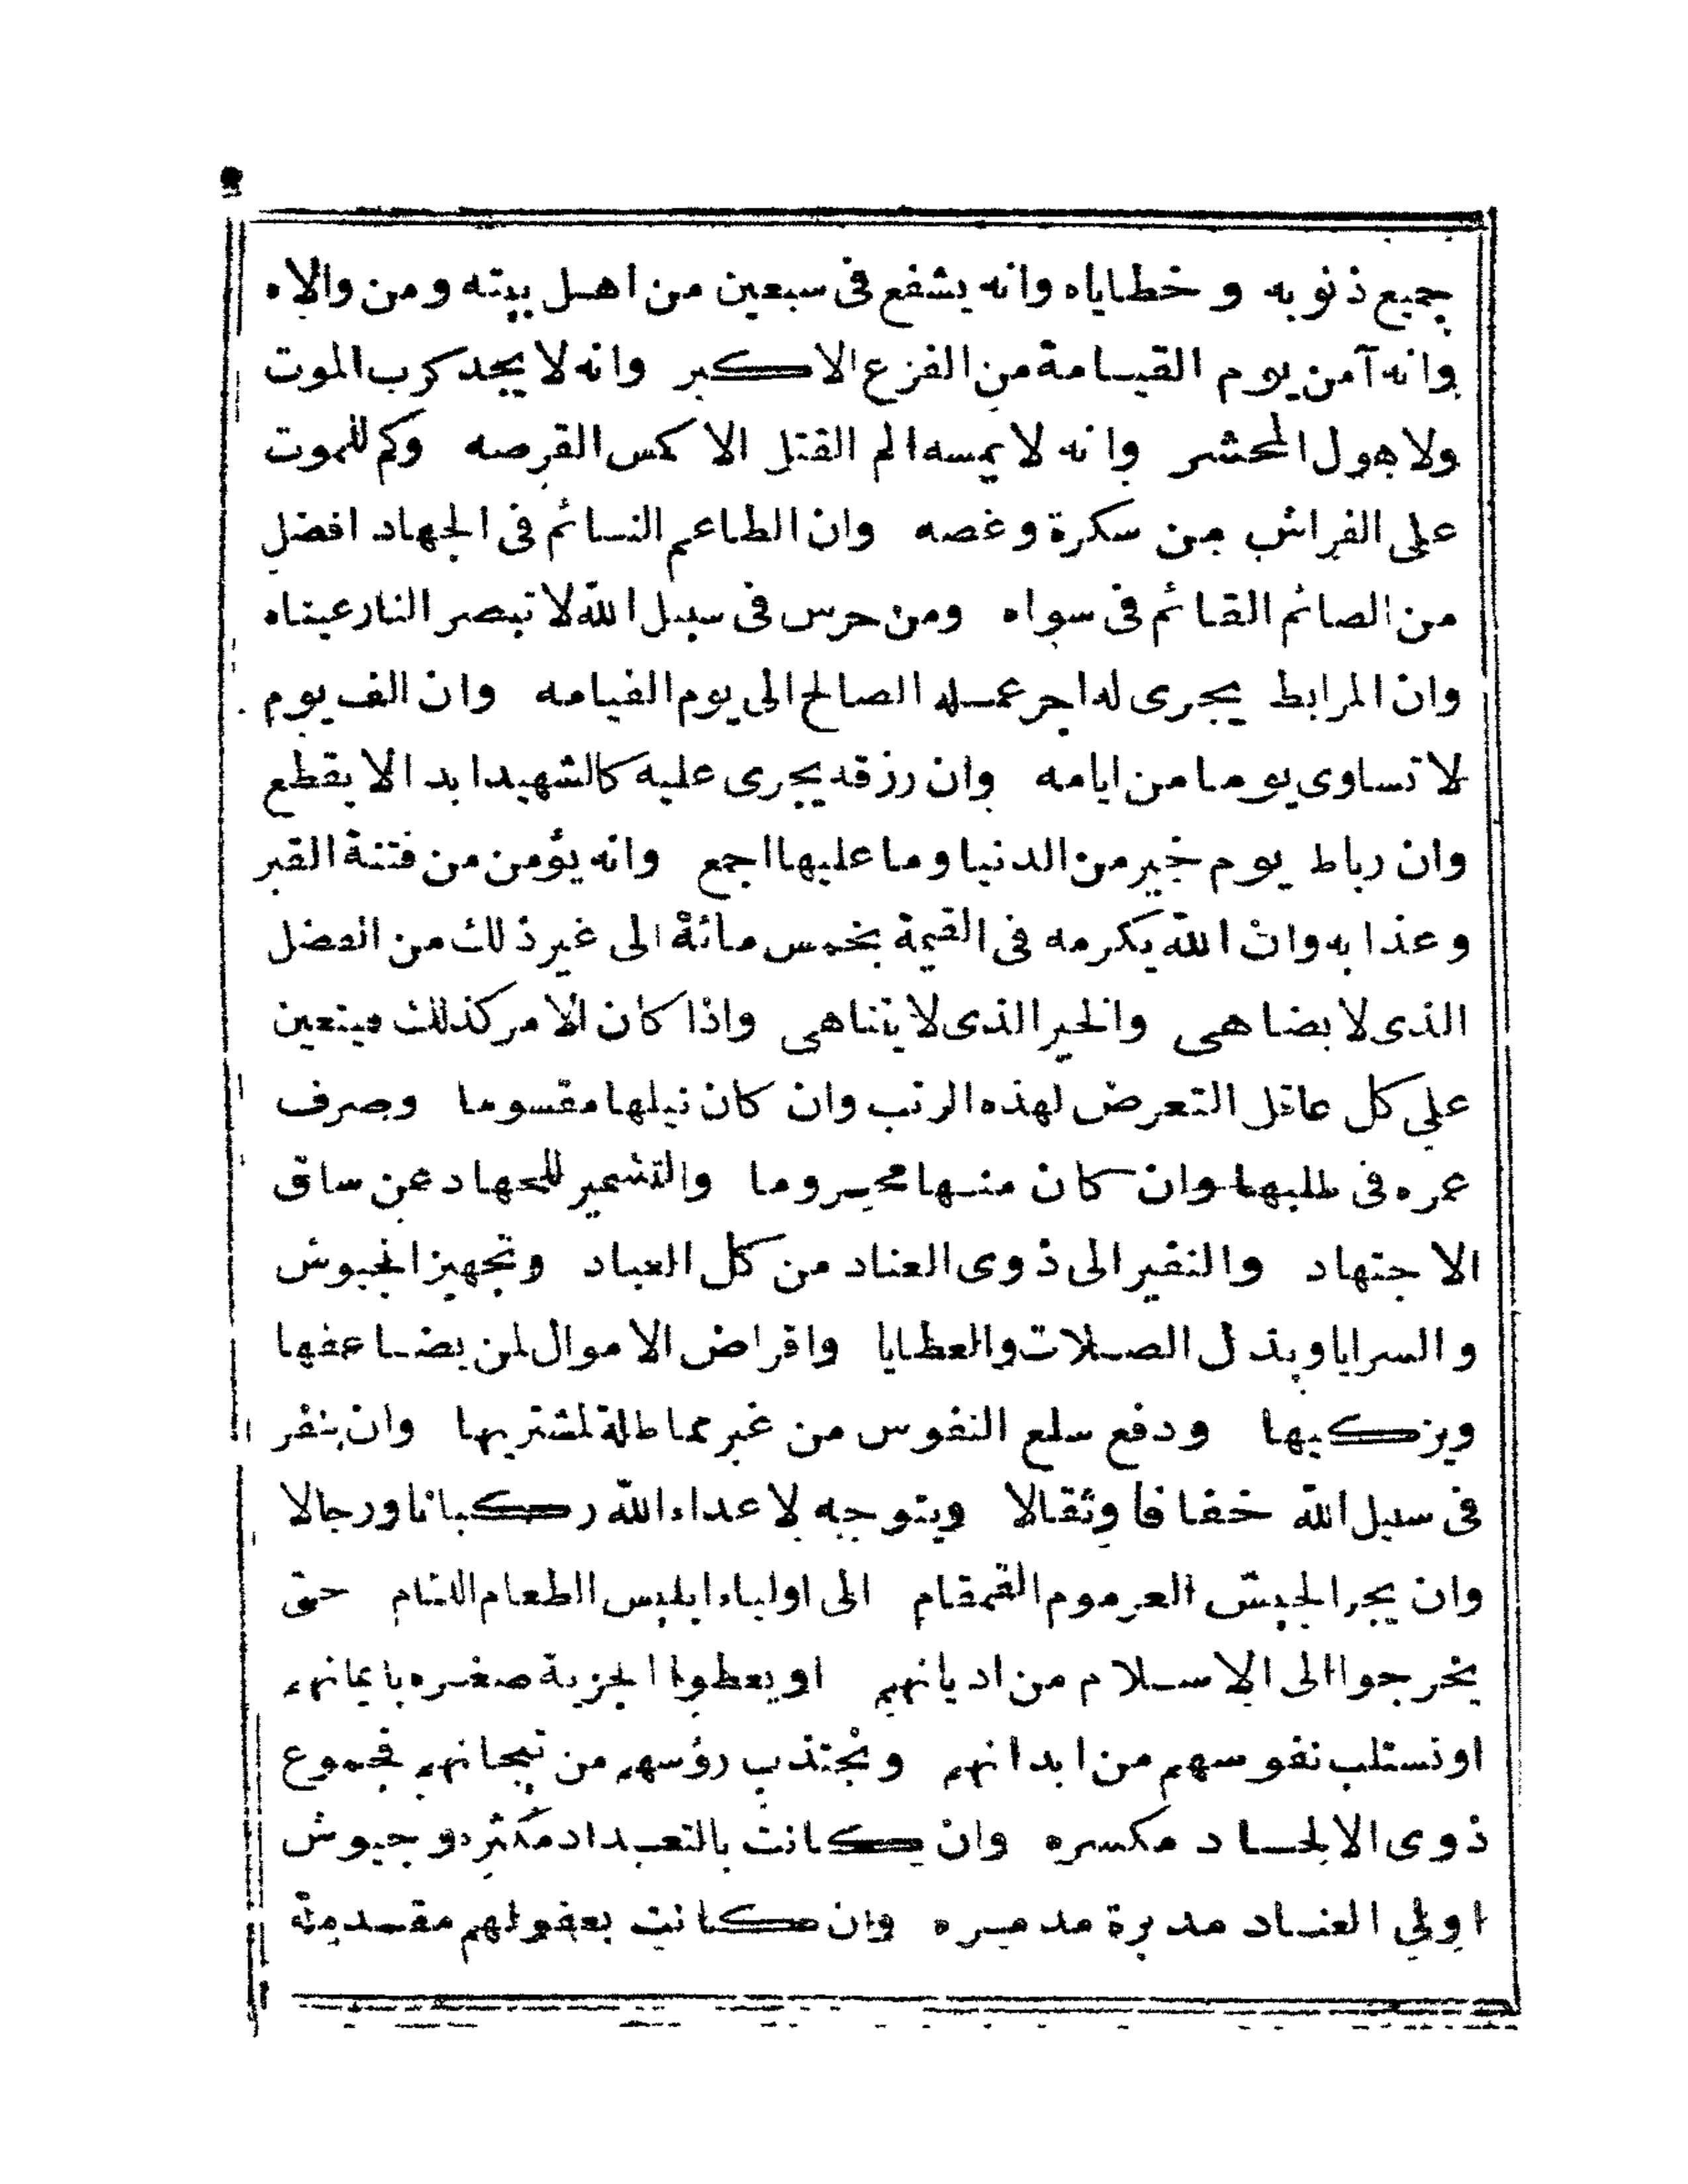 جميع ذنوبه وخطاياه وانه يشفع فى سبعين من اهل بيته ومن والاه
وانه آمن يوم القيامة من الفزع الاكبر وانه لا يجد كرب الموت
ولا هول المحشر وانه لا يمسه الم القتل الا كمس القرصه وكم للموت
على الفراش من سكرة وغصه وان الطاعم النائم فى الجهاد افضل
من الصائم القائم فى سواه ومن حرس فى سبيل الله لا تبصر النار عيناه
وان المرابط يجرى له اجر عمله الصالح الى يوم القيامه وان الف يوم
لا تساوى يوما من ايامه وان رزقه يجرى عليه كالشهيد ابدا لا يقطع
وان رباط يوم خير من الدنيا وما عليها اجمع وانه يؤمن من فتنة القبر
وعذابه وان الله يكرمه فى القيمة بخمس مائة الى غير ذلك من الفضل
الذى لا يضاهى والخير الذى لا يتناهى واذا كان الامر كذلك فيتعين
على كل عاقل التعرض لهذه الرتب وان كان نيلها مقسوما وصرف
عمره فى طلبها وان كان منها محروما والتشمير للجهاد عن ساق
الاجتهاد والنفير الى ذوى العناد من كل العباد وتجهيز الجيوش
والسرايا وبذل الصلات والعطايا واقراض الاموال لمن يضاعفها
ويزكيها ودفع سلع النفوس من غير مماطلة لمشتريها وان ينفر
فى سبيل الله خفافا وثقالا ويتوجه لاعداء الله ركبانا ورجالا
وان يجر الجيش العرموم القمقام الى اولياء ابليس الطعام اللئام حتى
يخرجوا الى الاسلام من اديانهم او يعطوا الجزية صغره بايمانهم
او تستلب نفوسهم من ابدانهم وتجتذب رؤسهم من تيجانهم فجموع
ذوى الالحاد مكسره وان كانت بالتعداد مكثره وجيوش
اولى العناد مدبرة مدمره وان كانت بعقولهم مقدمة